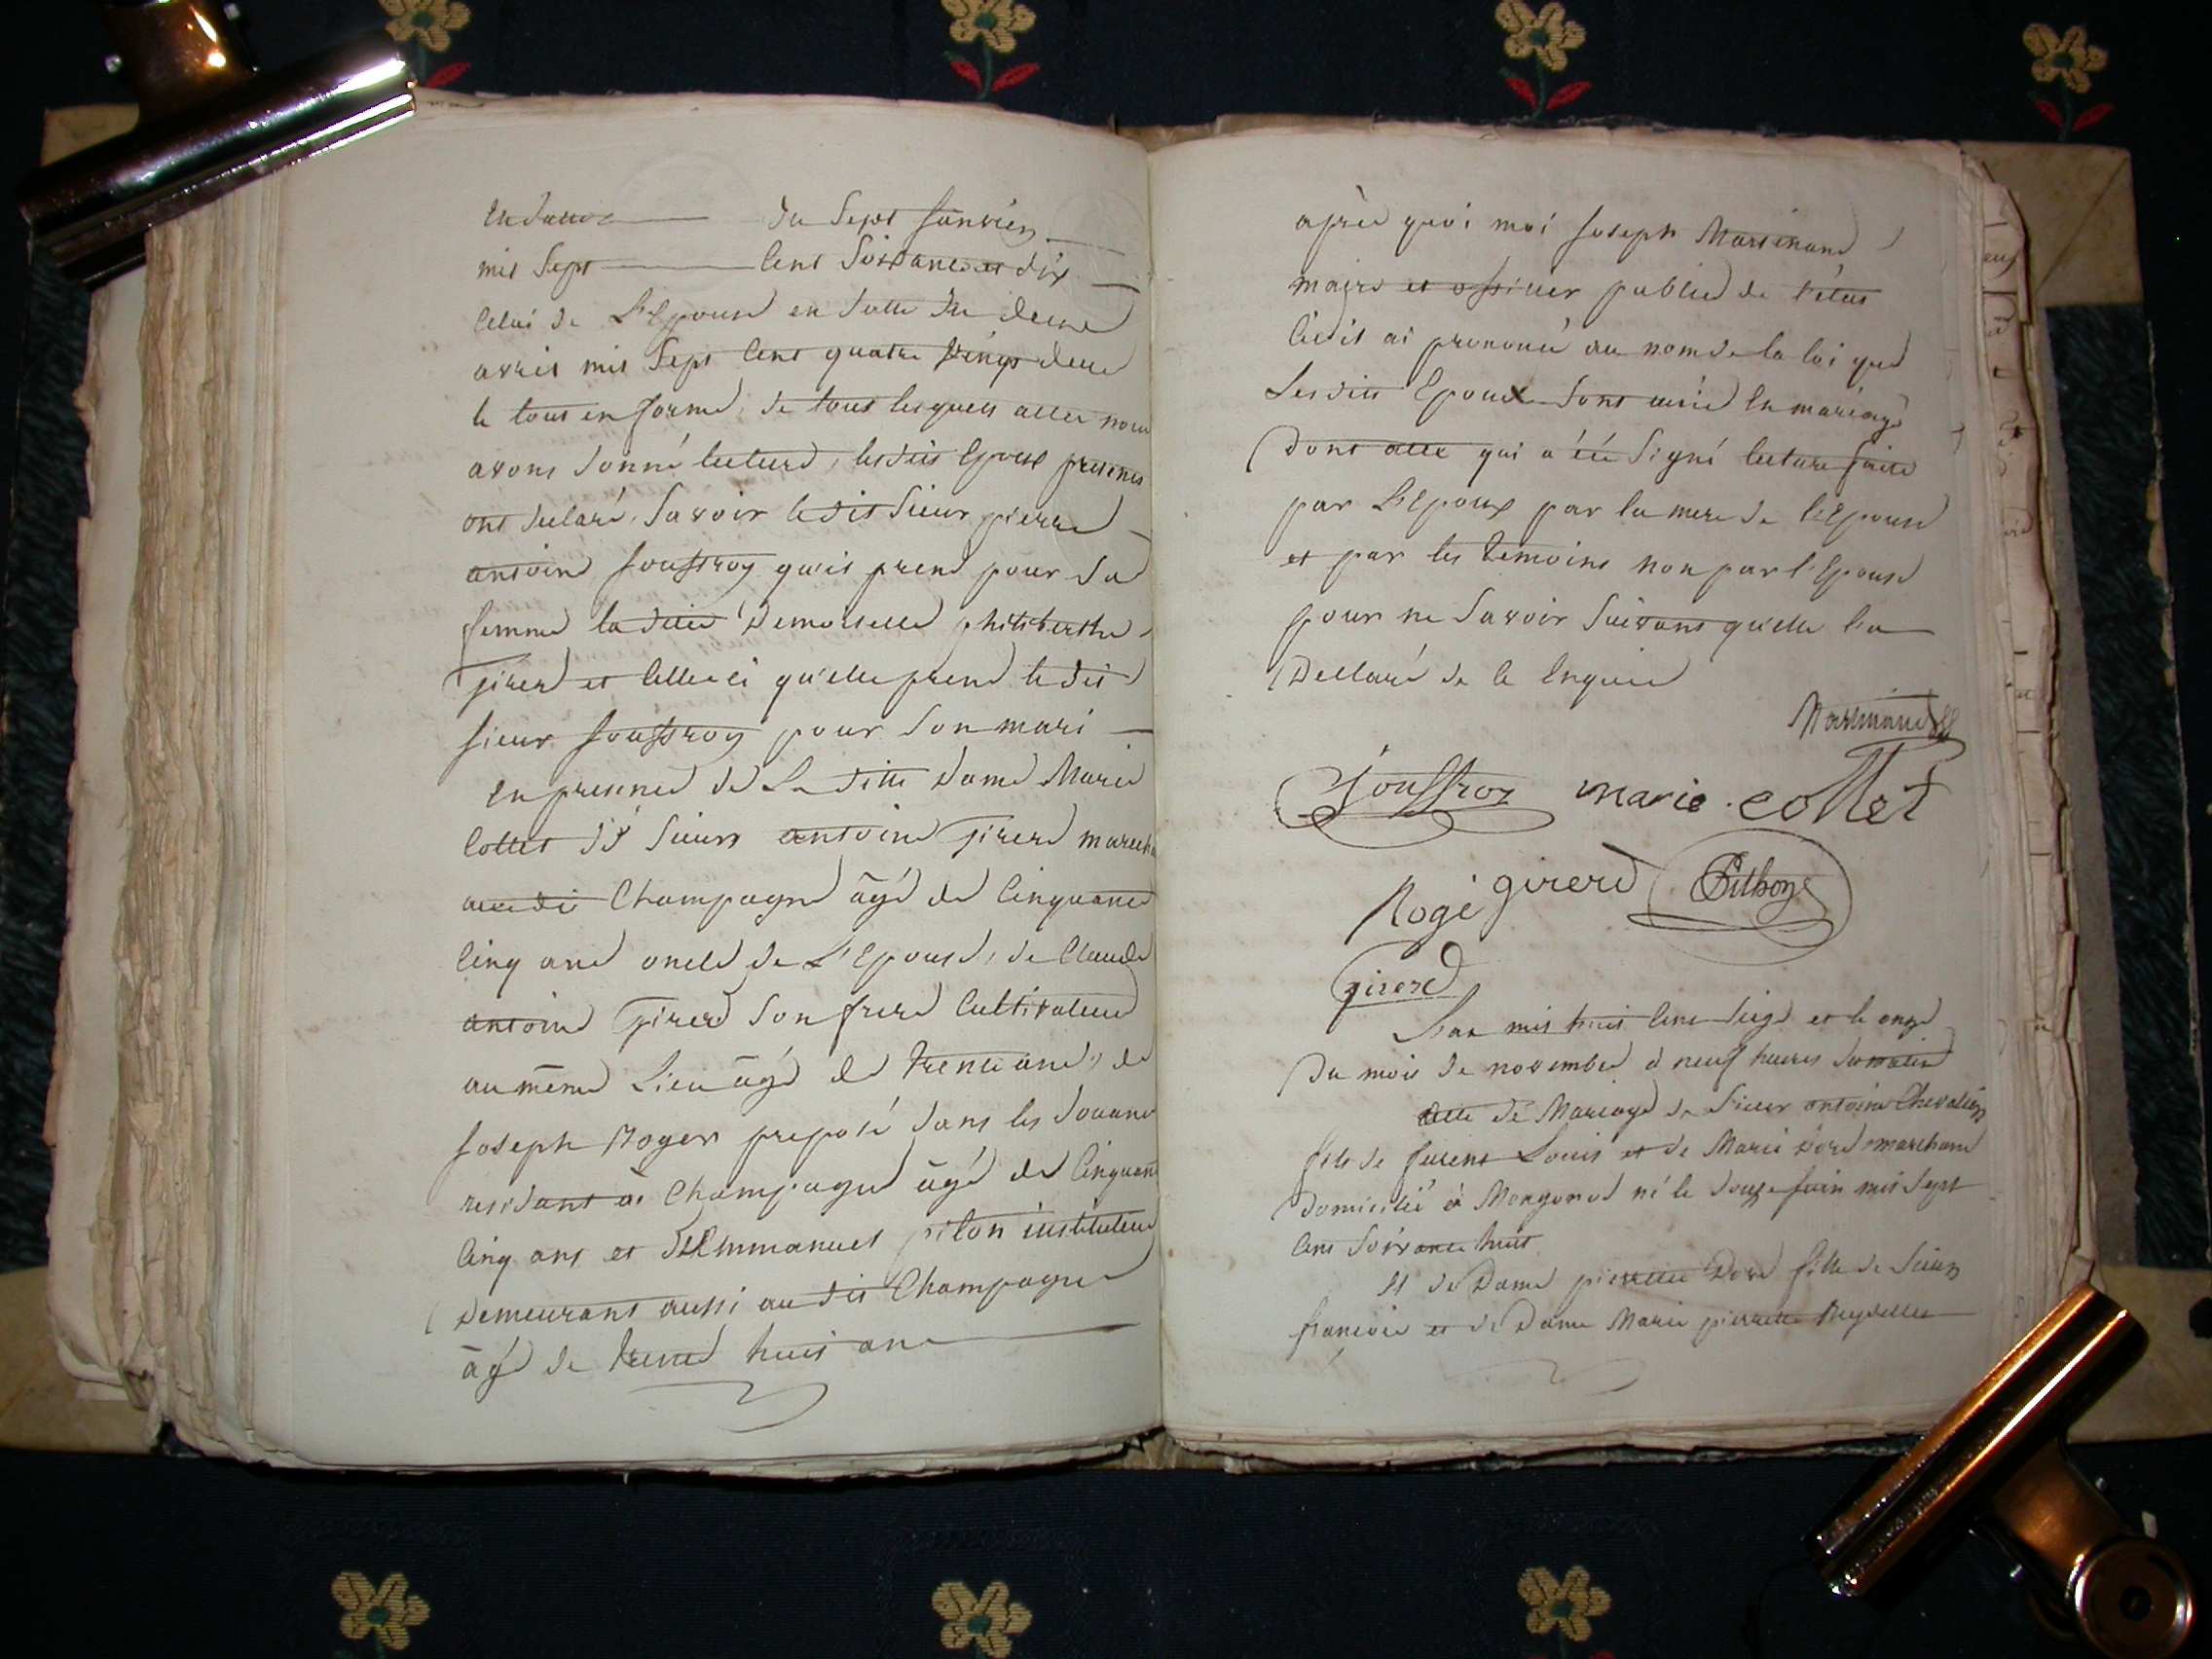 en datte du Sept Janvier
mil Sept Cent Soixante et dix
Celui de L'Epouse en datte du deux
avril mil Sept Cent quatre vingt deux
le tout en forme, de tous lesquels actes nous
avons donné lecture, lesdits Epoux presents
ont declaré, Savoir ledit Sieur pierre
antoine Jouffroy qu'il prend pour Sa
femme ladite Demoiselle philiberthe
Girerd et Celle ci qu'elle prend ledit
Sieur Jouffroy pour Son mari
en presence de La ditte Dame Marie
Collet Sieur antoine Girerd
audit Champagne âgé de Cinquante
Cinq ans oncle de L'Epouse, de Claude
antoine Girerd Son frere Cultivateur
au même Lieu âgé de trente ans, de
Joseph Roger preposé dans les douanes
residant à Champagne âgé de Cinquante
Cinq ans et Sr Emmanuel piton instituteur
Demeurant aussi au dit Champagne
âgé de trente huit ans
après quoi moi Joseph Martinand
maire et officier public de l'état
Civil ai prononcé au nom de la loi que
Lesdits Epoux Sont unis en mariage
Dont acte qui a été Signé lecture faite
par L'Epoux par la mere de l'Epouse
et par les temoins non par l'Epouse
pour ne Savoir Suivant qu'elle l'a
Declaré de ce Enquise
Martinand
Jouffroy marie collet
Rogé girerd
girerd
L'an mil huit Cent Seize et le onze
Du mois de novembre à neuf heures du matin
acte de Mariage de Sieur antoine Chevalier
fils de Louis et de Marie Doré marchand
Domicilié à né le douze Juin mil Sept
Cent Soixante huit
Et de Dame pierrette Doré fille de Sieur
françois et de Dame Marie pierrette Reydellet